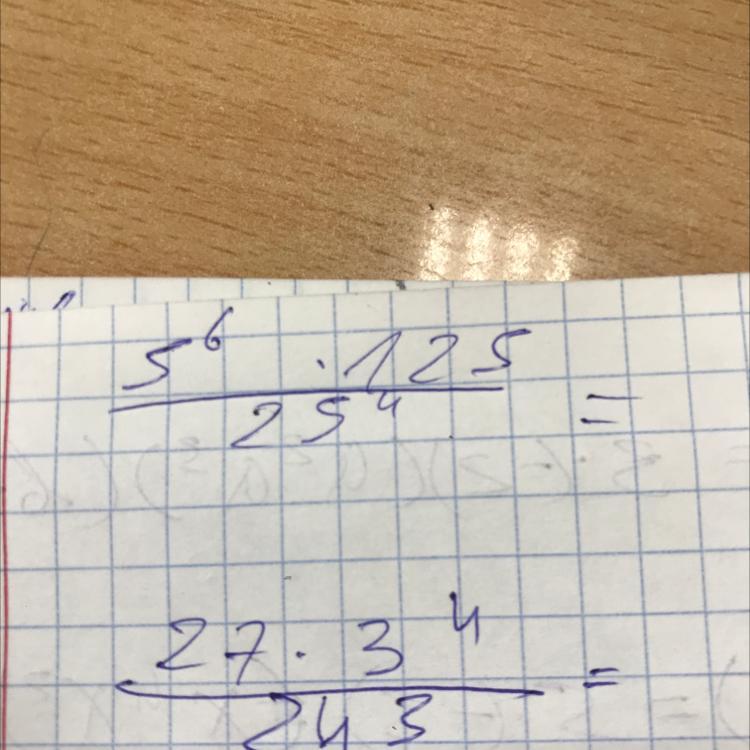 5⁶ · 125
25⁴ =
27 · 3⁴
243 =